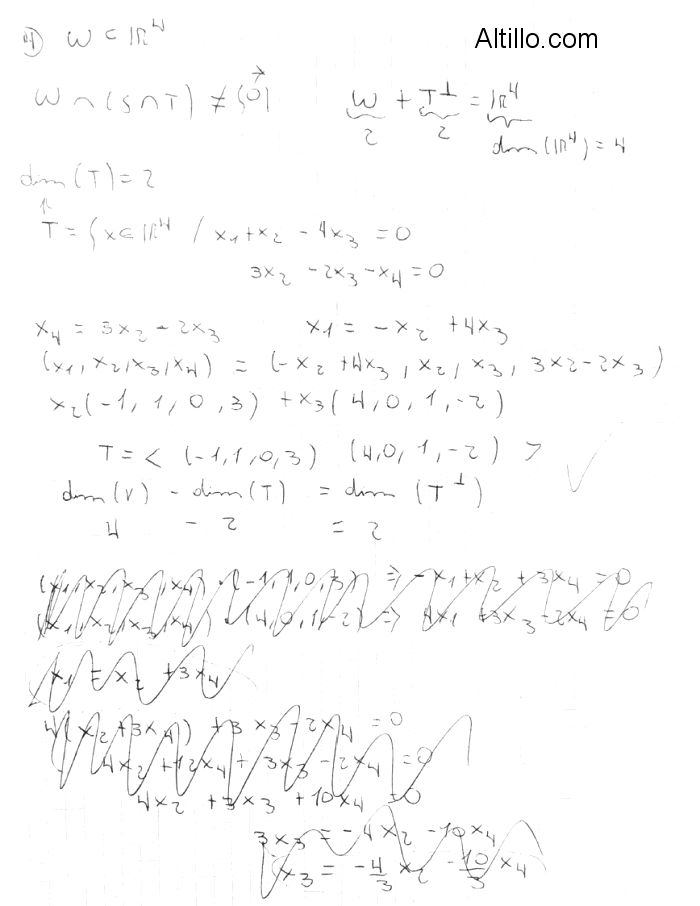 Altillo.com
4) W ⊂ ℝ⁴
W ∩ (S ∩ T) ≠ {0⃗}
W + T⊥ = ℝ⁴
2 2 dim(ℝ⁴) = 4
dim(T) = 2
T = {x ∈ ℝ⁴ / x1 + x2 - 4x3 = 0
3x2 - 2x3 - x4 = 0
x4 = 3x2 - 2x3 x1 = -x2 + 4x3
(x1, x2, x3, x4) = (-x2 + 4x3, x2, x3, 3x2 - 2x3)
x2(-1, 1, 0, 3) + x3(4, 0, 1, -2)
T = < (-1, 1, 0, 3) (4, 0, 1, -2) > ✓
dim(V) - dim(T) = dim(T⊥)
4 - 2 = 2
(x1, x2, x3, x4) · (-1, 1, 0, 3) ⇒ -x1 + x2 + 3x4 = 0
(x1, x2, x3, x4) · (4, 0, 1, -2) ⇒ 4x1 + 3x3 - 2x4 = 0
x1 = x2 + 3x4
4(x2 + 3x4) + 3x3 - 2x4 = 0
4x2 + 12x4 + 3x3 - 2x4 = 0
4x2 + 3x3 + 10x4 = 0
3x3 = -4x2 - 10x4
x3 = -4/3 x2 - 10/3 x4